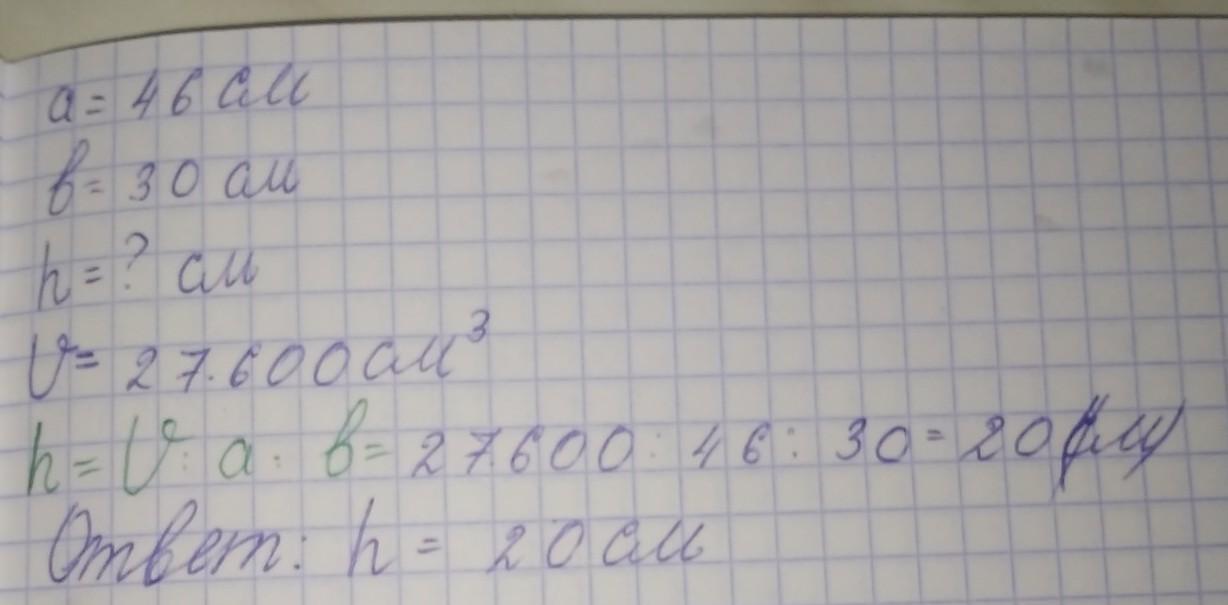 a = 46 см
в = 30 см
h = ? см
V = 27.600 см³
h = V : a : в = 27.600 : 46 : 30 = 20 (см)
Ответ: h = 20 см